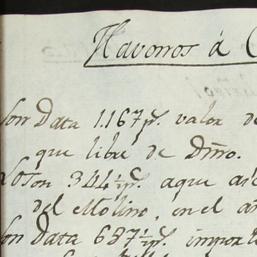 Havonros á
Son Data 1.167 p.s valor de
que libre de Dño.
Son 344 1/2 p.s aque as
del Molino, en el a
Son Data 687 1/2 p.s impor